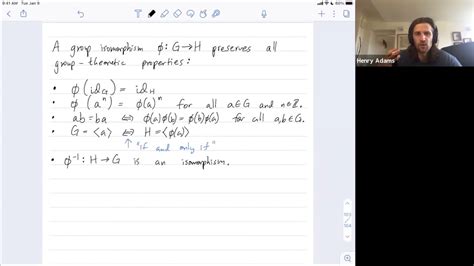 9:41 AM Tue Jan 9
A group isomorphism ϕ: G→H preserves all
group-theoretic properties:
• ϕ(id_G) = id_H
• ϕ(aⁿ) = ϕ(a)ⁿ for all a∈G and n∈ℤ.
• ab=ba ⇔ ϕ(a)ϕ(b) = ϕ(b)ϕ(a) for all a,b∈G.
• G = <a> ⇔ H = <ϕ(a)>
↑ "if and only if"
• ϕ⁻¹: H→G is an isomorphism.
Henry Adams